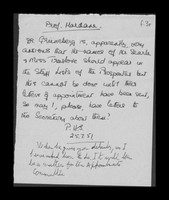 Prof. Hardane
Dr Gruneberg is, apparently, very
anxious that the names of Dr Searle
& Moss Traston should appear in
the Staff Lists of the Prospectus but
this cannot be done until their
letters of appointment have been sent,
so may I, please, have letter to
the Secretary about this?
P.H.
25.7.51
When he gives you details, and
forwarded them to
to a matter for the Appointments
Committee